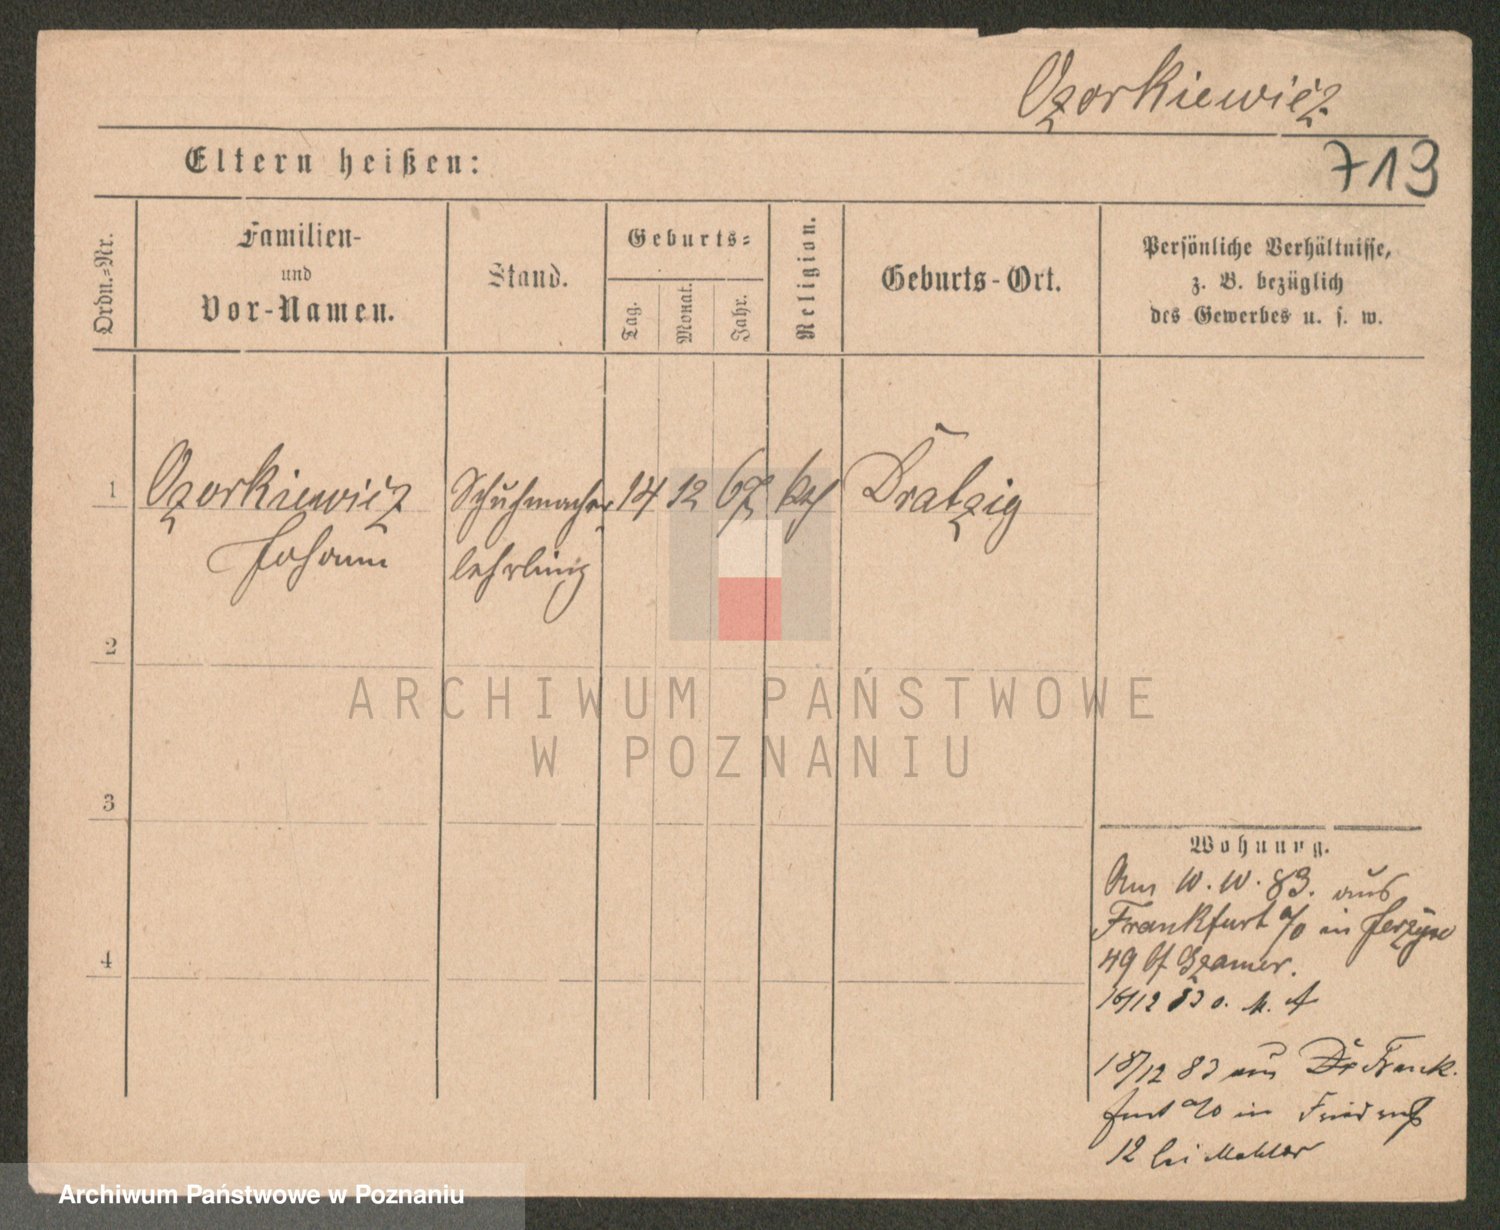 Ozorkiewicz
Eltern heißen:
713
Ordn.-Nr.
Familien-
und
Vor-Namen.
Stand.
Geburts-
Tag.
Monat.
Jahr.
Religion.
Geburts-Ort.
Persönliche Verhältnisse,
z. B. bezüglich
des Gewerbes u. s. w.
1 Ozorkiewicz Schuhmacher 14 12 67 kth Dratzig
Johann lehrling
2
3
4
ARCHIWUM PAŃSTWOWE
W POZNANIU
Wohnung.
Am 10. 10. 83. aus
Frankfurt a/O in Jerzyce
49 bei
16/12 83 o.
18/12 83 aus Frank-
furt a/O in
12 bei
Archiwum Państwowe w Poznaniu